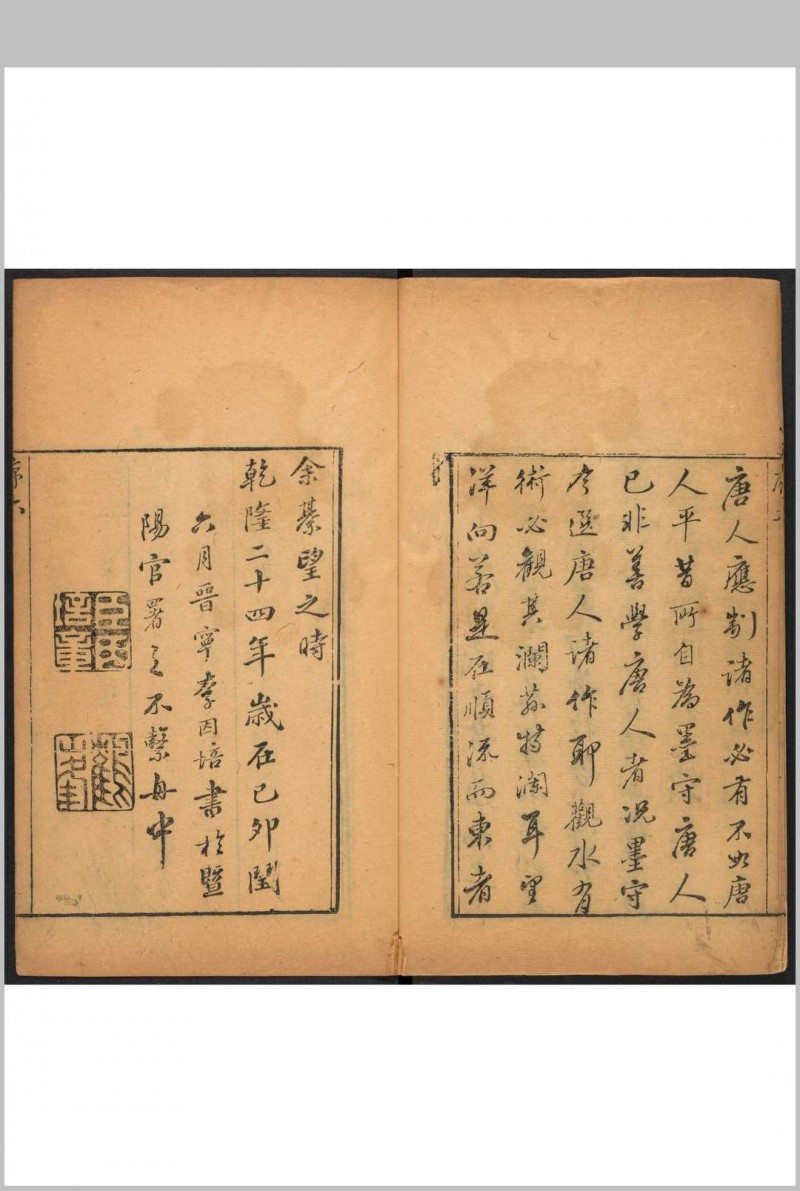 唐人應制諸作必有不如唐
人平昔所自為墨守唐人
已非善學唐人者况墨守
今選唐人諸作耶觀水有
術必觀其瀾茲特瀾耳望
洋向若是在順流而東者
余綦望之時
乾隆二十四年歲在己卯閏
六月晋寧李因培書於暨
陽官署之不繫舟中
序六